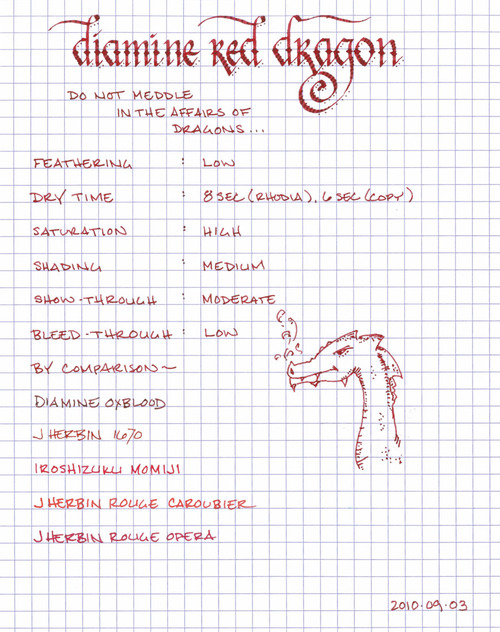 diamine red dragon
DO NOT MEDDLE
IN THE AFFAIRS OF
DRAGONS...
FEATHERING : LOW
DRY TIME : 8 SEC (RHODIA), 6 SEC (COPY)
SATURATION : HIGH
SHADING : MEDIUM
SHOW-THROUGH : MODERATE
BLEED-THROUGH : LOW
BY COMPARISON~
DIAMINE OXBLOOD
J HERBIN 1670
IROSHIZUKU MOMIJI
J HERBIN ROUGE CAROUBIER
J HERBIN ROUGE OPERA
2010.09.03